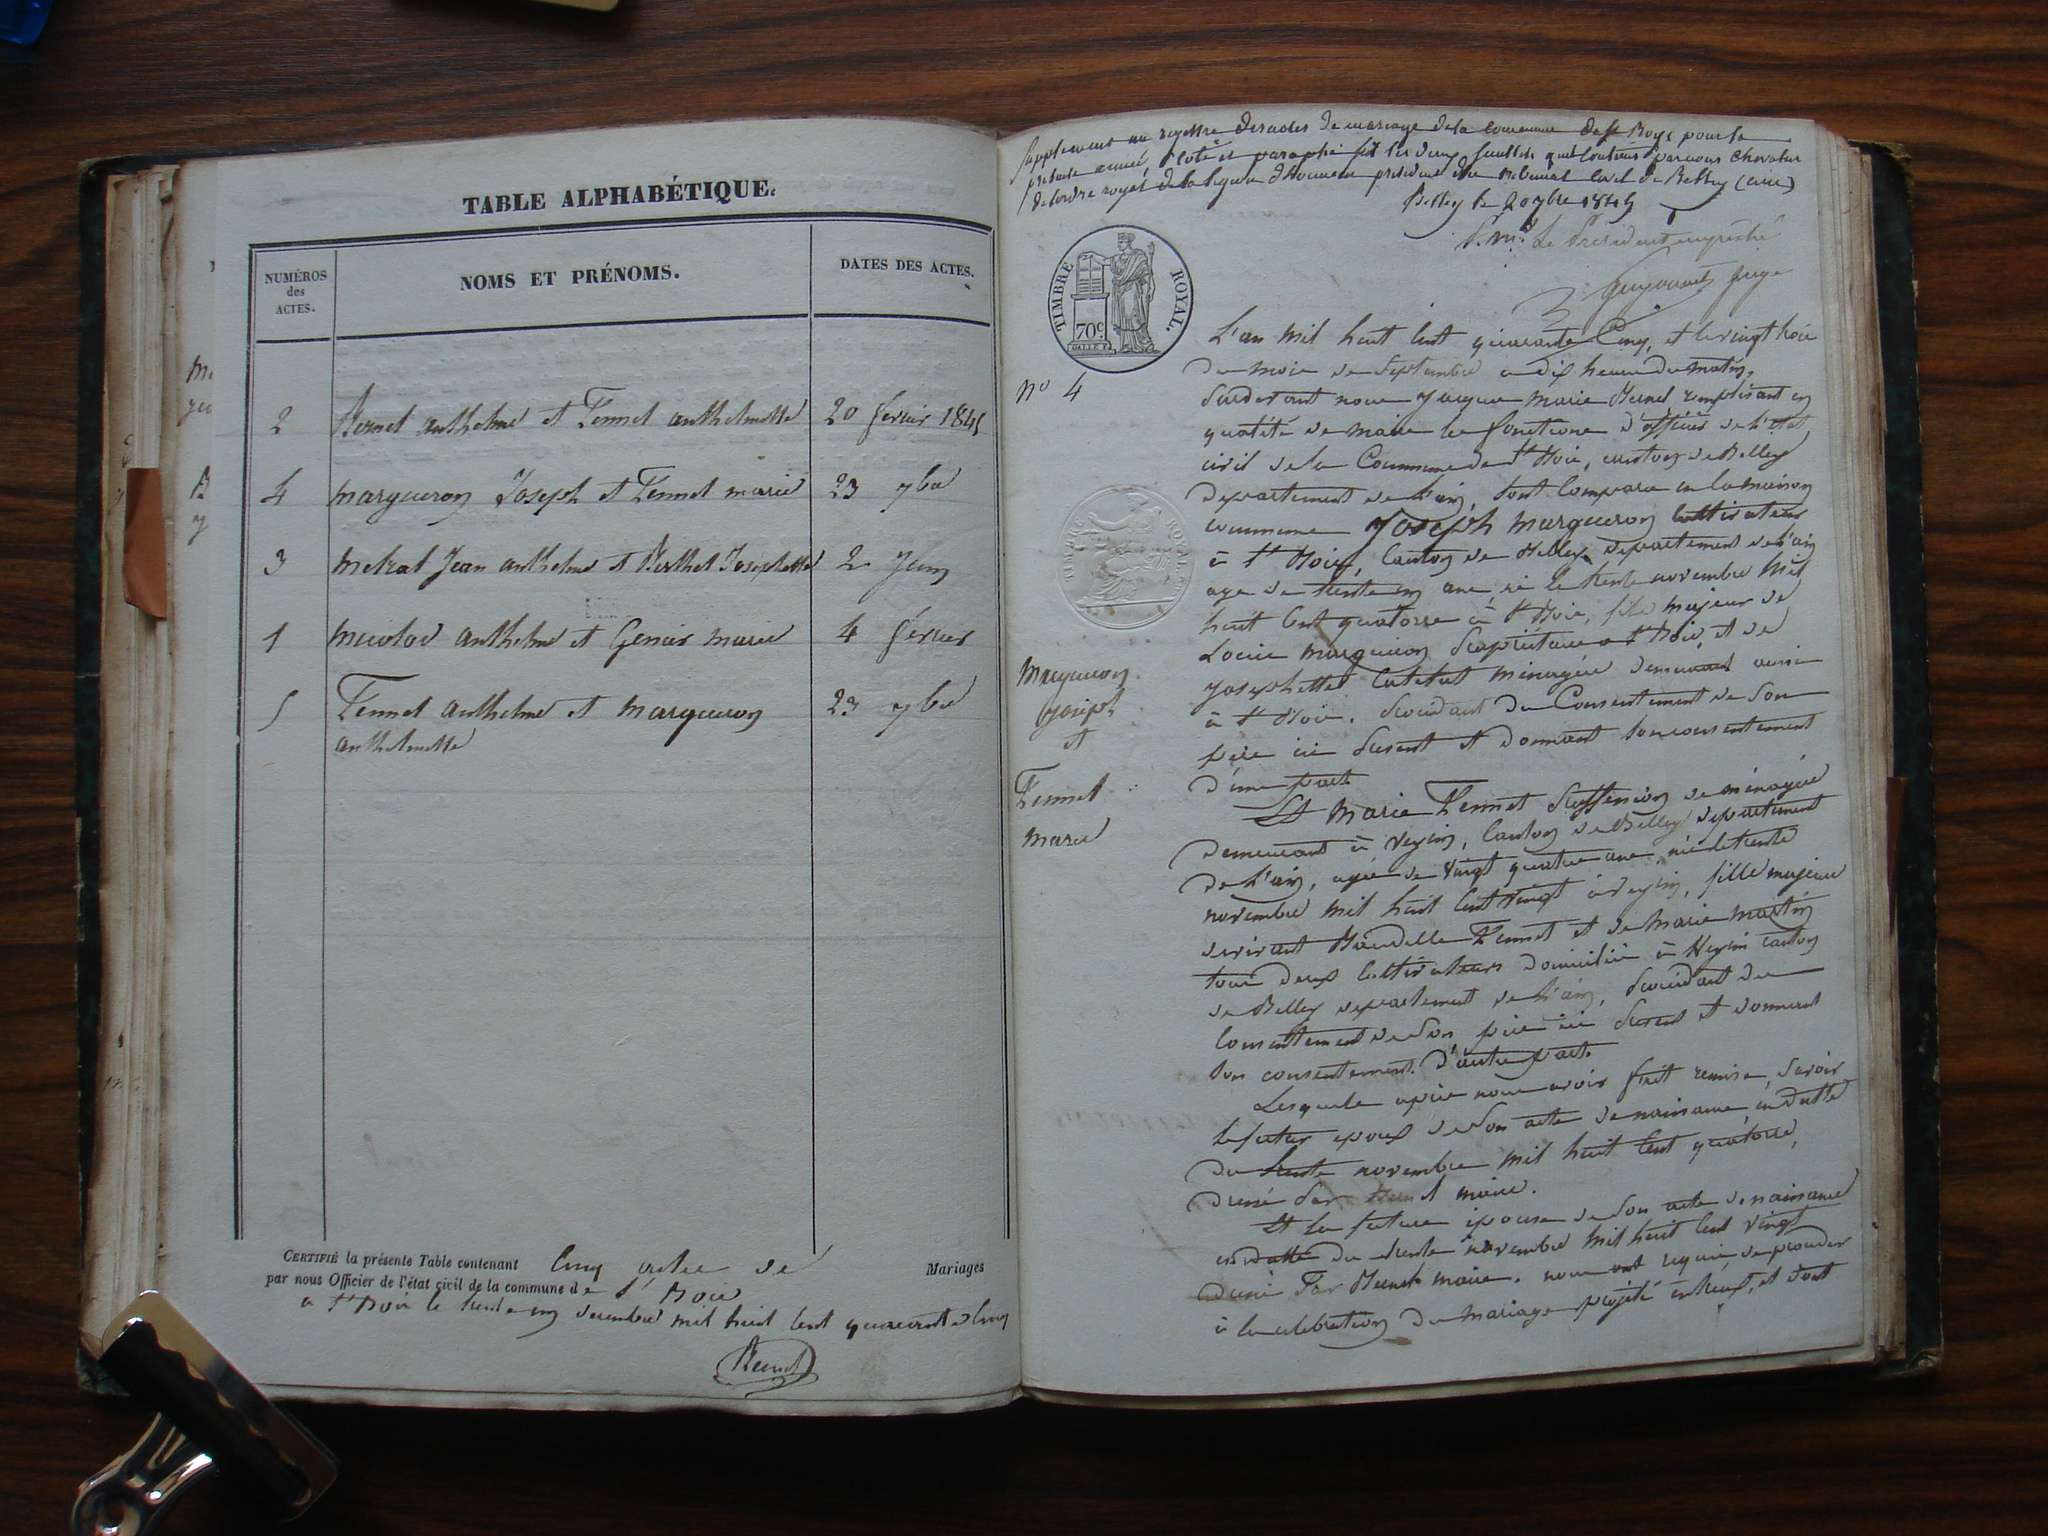 TABLE ALPHABÉTIQUE.
NUMÉROS
des
ACTES.
NOMS ET PRÉNOMS.
DATES DES ACTES.
2 anthelme et anthelmette 20 fevrier 1845
4 margueron Joseph et marie 23 7bre
3 Jean anthelme et Berthet Josephette 2 Juin
1 anthelme et marie 4 fevrier
5 anthelme et margueron 23 7bre
anthelmette
CERTIFIÉ la présente Table contenant Cinq actes de Mariages
par nous Officier de l'état civil de la commune de St Boie
a St Boie le trente un decembre mil huit cent quarante Cinq
Supplement au registre des actes de mariage de la commune de St Boye pour la
presente année, coté et paraphé par nous chevalier
de l'ordre royal de la legion d'honneur president du tribunal civil de Belley (ain)
Belley le 20 7bre 1845
Le President empeché
juge
TIMBRE ROYAL.
70c
No 4
L'an mil huit cent quarante Cinq, et le vingt trois
du mois de Septembre a dix heures du matin,
pardevant nous Jacques marie remplissant en
qualité de maire les fonctions d'officier de l'etat
civil de la Commune de St Boie, canton de Belley
departement de l'ain, sont comparu en la maison
commune Joseph margueron Cultivateur
à St Boie, Canton de Belley departement de l'ain
age de trente ans né le trente novembre mil
huit cent quatorze à St Boie, fils majeur de
Louis margueron proprietaire a St Boie, et de
Josephette menagère demeurant aussi
à St Boie. procedant du Consentement de son
père ici present et donnant son consentement
d'une part.
Margueron
Joseph
et
marie
Et Marie proffession de ménagère
demeurant à Canton de Belley departement
de l'ain, agée de vingt quatre ans née le trente
novembre mil huit cent vingt à fille majeure
et de marie martin
tous deux Cultivateurs domicilié à canton
de Belley departement de l'ain, procedant du
consentement de son père ici present et donnant
son consentement. D'autre part.
Lesquels après nous avoir fait remise, savoir
le futur epoux de son acte de naissance, en datte
du trente novembre mil huit cent quatorze,
dressé par maire.
Et la future epouse de son acte de naissance
en datte du trente novembre mil huit cent vingt
dressé Par maire. nous ont requis de proceder
à la celebration du mariage projeté entreux, et dont